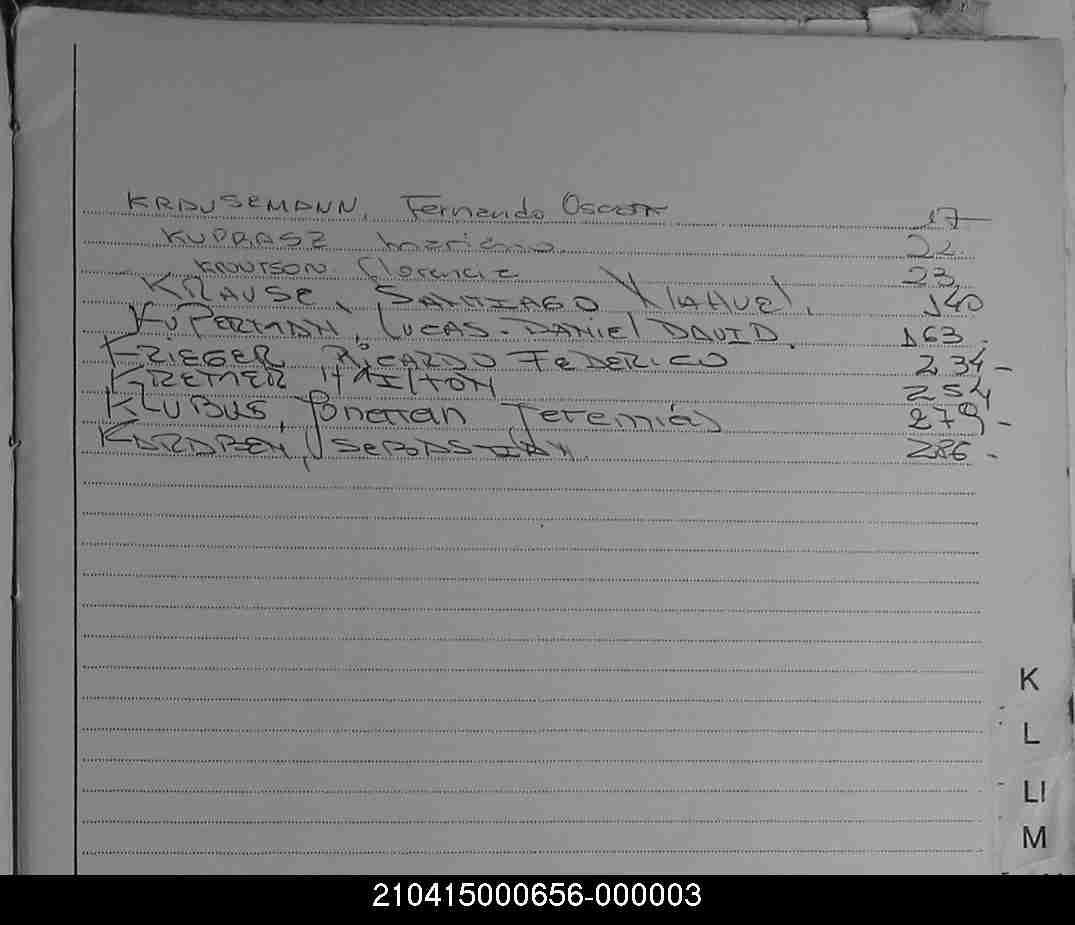 KRAUSEMANN, Fernando Oscar 17
KUPRASZ Mariano 22
KNUTSON Florencia 23
KRAUSE, SANTIAGO NAHUEL. 140
KUPERMAN, LUCAS-DANIEL DAVID. 163.
KRIEGER RICARDO FEDERICO 234-
KREMER HAILTON 254
KLUBUS, Jonattan Jeremías 279-
KARABEN, SEBASTIAN. 286-
K
L
Ll
M
210415000656-000003